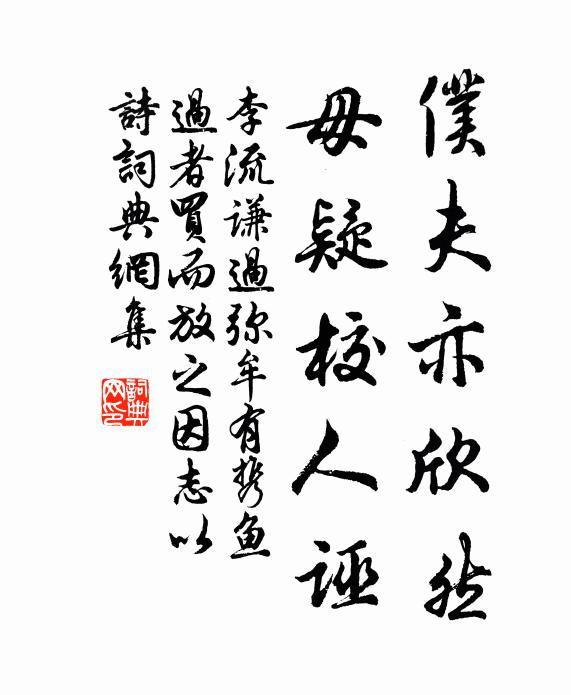 僕夫亦欣然
毋疑校人誣
李流謙過弥牟有携鱼
過者買而放之因志以
詩詞典網集
詞典网印